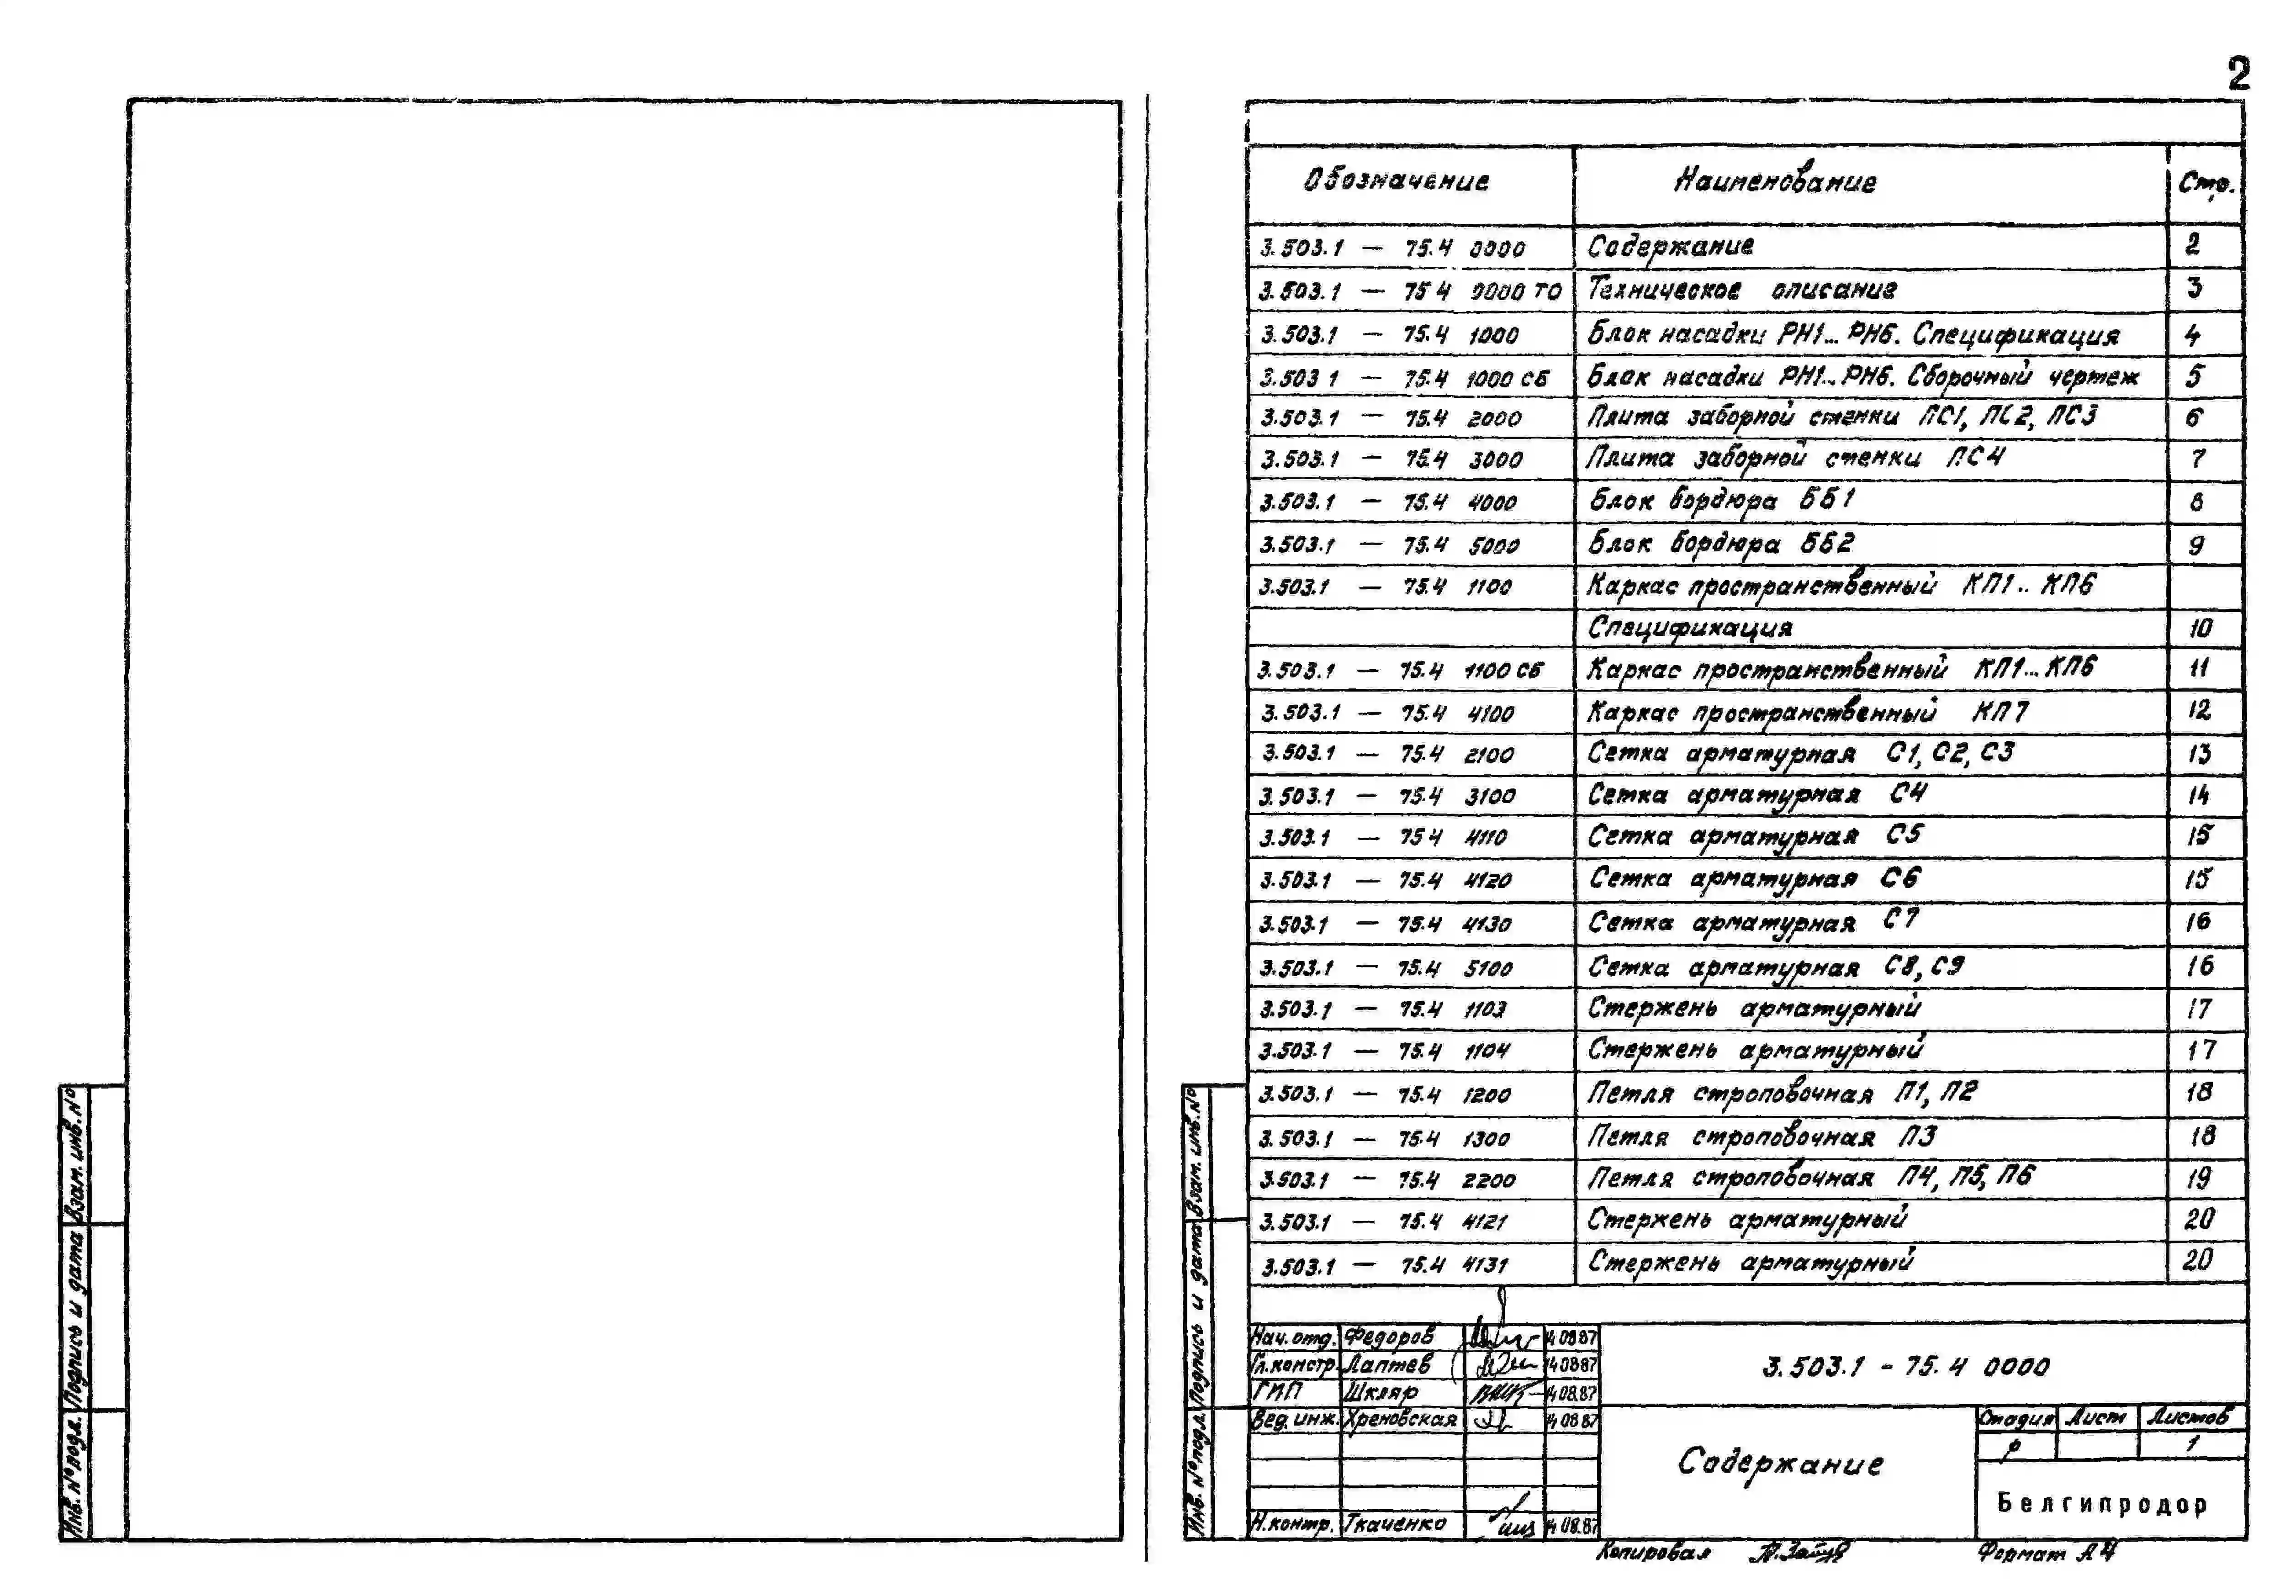 2
Обозначение Наименование Стр.
3.503.1 — 75.4 0000 Содержание 2
3.503.1 — 75 4 0000 ТО Техническое описание 3
3.503.1 — 75.4 1000 Блок насадки РН1... РН6. Спецификация 4
3.503 1 — 75.4 1000 СБ Блок насадки РН1... РН6. Сборочный чертеж 5
3.503.1 — 75.4 2000 Плита заборной стенки ПС1, ПС2, ПС3 6
3.503.1 — 75.4 3000 Плита заборной стенки ПС4 7
3.503.1 — 75.4 4000 Блок бордюра ББ1 8
3.503.1 — 75.4 5000 Блок бордюра ББ2 9
3.503.1 — 75.4 1100 Каркас пространственный КП1.. КП6
Спецификация 10
3.503.1 — 75.4 1100 СБ Каркас пространственный КП1... КП6 11
3.503.1 — 75.4 4100 Каркас пространственный КП7 12
3.503.1 — 75.4 2100 Сетка арматурная С1, С2, С3 13
3.503.1 — 75.4 3100 Сетка арматурная С4 14
3.503.1 — 75 4 4110 Сетка арматурная С5 15
3.503.1 — 75.4 4120 Сетка арматурная С6 15
3.503.1 — 75.4 4130 Сетка арматурная С7 16
3.503.1 — 75.4 5100 Сетка арматурная С8, С9 16
3.503.1 — 75.4 1103 Стержень арматурный 17
3.503.1 — 75.4 1104 Стержень арматурный 17
3.503.1 — 75.4 1200 Петля строповочная П1, П2 18
3.503.1 — 75.4 1300 Петля строповочная П3 18
3.503.1 — 75.4 2200 Петля строповочная П4, П5, П6 19
3.503.1 — 75.4 4121 Стержень арматурный 20
3.503.1 — 75.4 4131 Стержень арматурный 20
Нач. отд. Федоров 14 08 87
Гл. констр. Лаптев 14 08 87
ГИП Шкляр 14 08.87
Вед. инж. Хреновская 14 08 87
Н. контр. Ткаченко 14 08.87
3.503.1 - 75.4 0000
Содержание
Стадия Лист Листов
Р 1
Белгипродор
Копировал
Формат А4
Взам. инв. №
Подпись и дата
Инв. № подл.
Взам. инв. №
Подпись и дата
Инв. № подл.